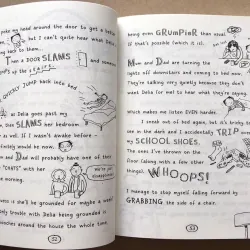 poke my head around the door to get a better
but I can't quite hear what Delia
back to them.
THEN a DOOR SLAMS and someone
UP the STAIRS.
QUICKLY JUMP back into bed and
as Delia goes past my
SLAMS her bedroom
as well. If I wasn't awake before -
definitely would be now.
and DAD will probably have one of their
"CHATS" with her
tomorrow.
she'll be grounded for maybe a week?
only trouble with Delia being grounded is
around the house the whole time.
52
being even GRUMPIER than usual
if that's possible (which it is).
MUM and DAD are turning the
lights off downstairs and coming to bed now.
They're talking very quietly because they don't
want Delia to hear what they're saying.
which makes me listen EVEN harder.
I sneak out of bed again, but it's tricky to
see in the dark and I accidentally TRIP
my SCHOOL SHOES.
The ones I've thrown on the
floor (along with a few
other things).
WHOOPS!
I manage to stop myself falling forward by
GRABBING the side of a chair.
53